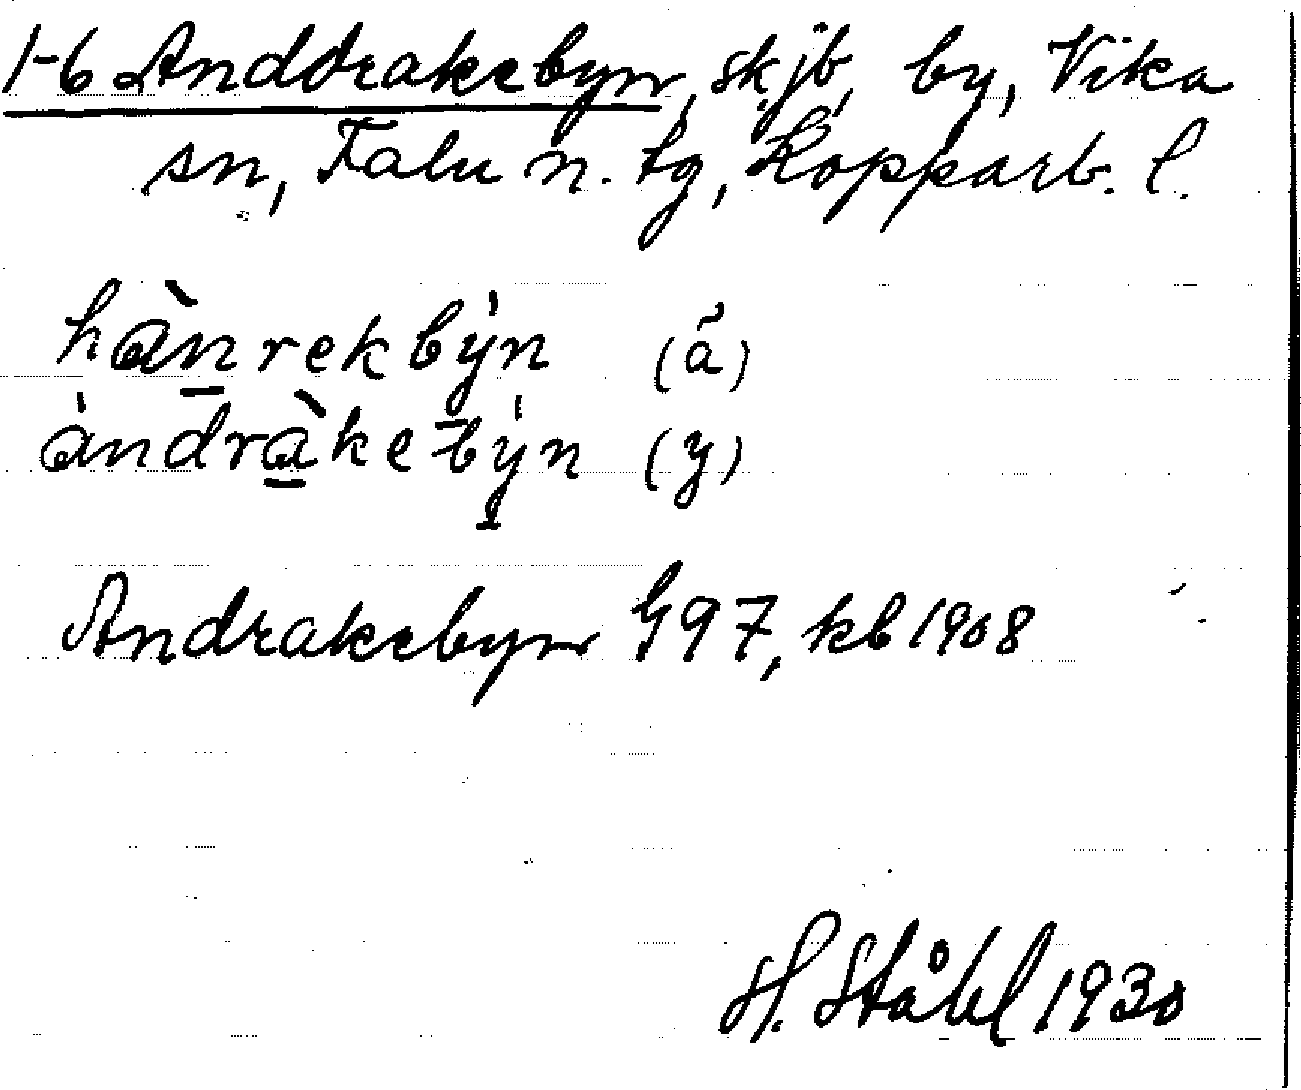 1-6 Anddrakebyn, skjb, by, Vika
sn, Falu n. tg, Kopparb. l.
hànrekby̍n (á)
a̍ndràkeby̍n (y)
Andrakebyn G97, kb 1908
H. Ståhl 1930